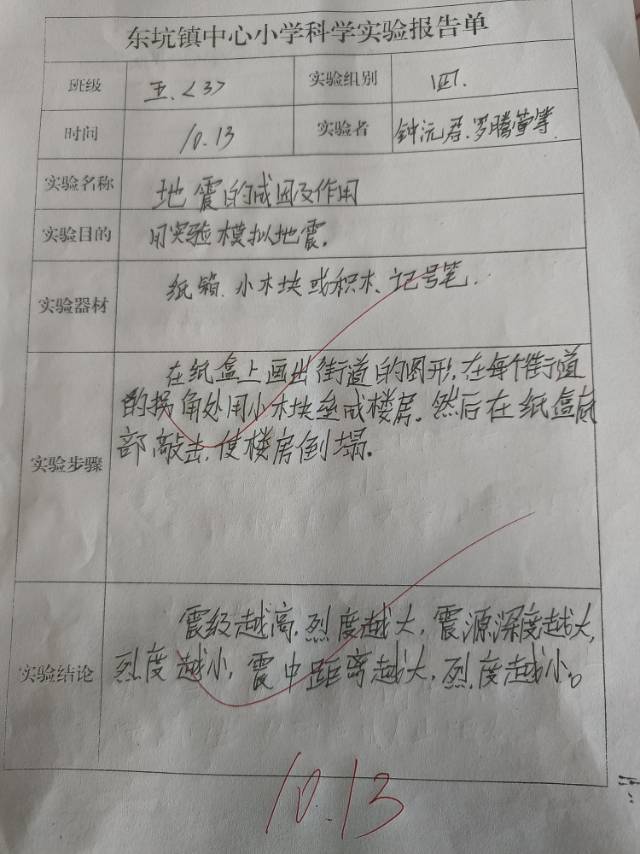 东坑镇中心小学科学实验报告单
班级 五.<3> 实验组别 四.
时间 10.13 实验者 钟沅君.罗腾萱等.
实验名称 地震的成因及作用
实验目的 用实验模拟地震.
实验器材 纸箱.小木块或积木、记号笔.
实验步骤
在纸盒上画出街道的图形,在每个街道
的拐角处用小木块垒成楼房.然后在纸盒底
部敲击,使楼房倒塌.
实验结论
震级越高,烈度越大,震源深度越大,
烈度越小,震中距离越大,烈度越小。
10.13